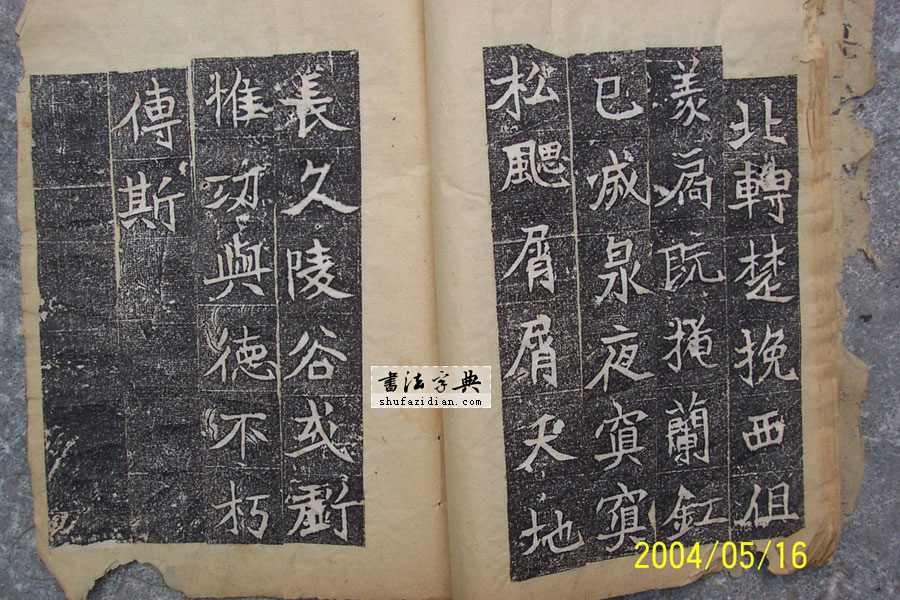 北轉楚挽西徂
羨扃既掩蘭釭
已滅泉夜冥冥
松颸屑屑天地
長久陵谷或虧
惟功與德不朽
傳斯
書法字典
shufazidian.com
2004/05/16